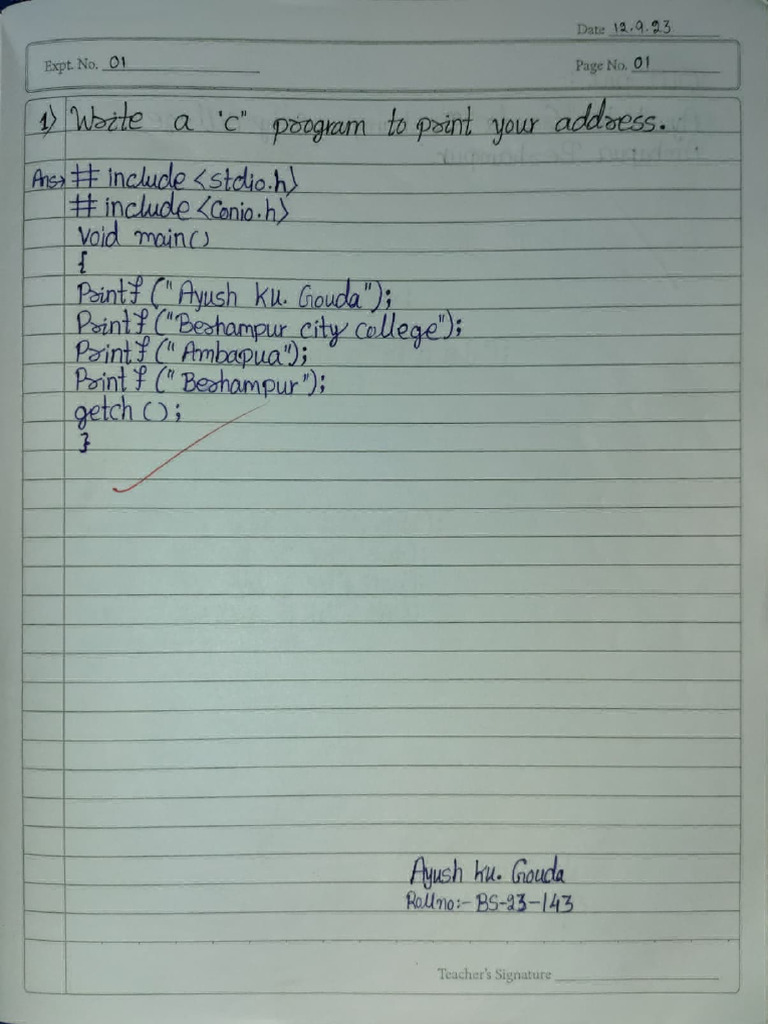 Date 12.9.23
Expt. No. 01
Page No. 01
1) Write a "C" program to print your address.
Ans→ # include <stdio.h>
# include <Conio.h>
void main()
{
Printf ("Ayush Ku. Gouda");
Printf ("Berhampur city college");
Printf ("Ambapua");
Printf ("Berhampur");
getch ();
}
Ayush Ku. Gouda
Roll no:- BS-23-143
Teacher's Signature